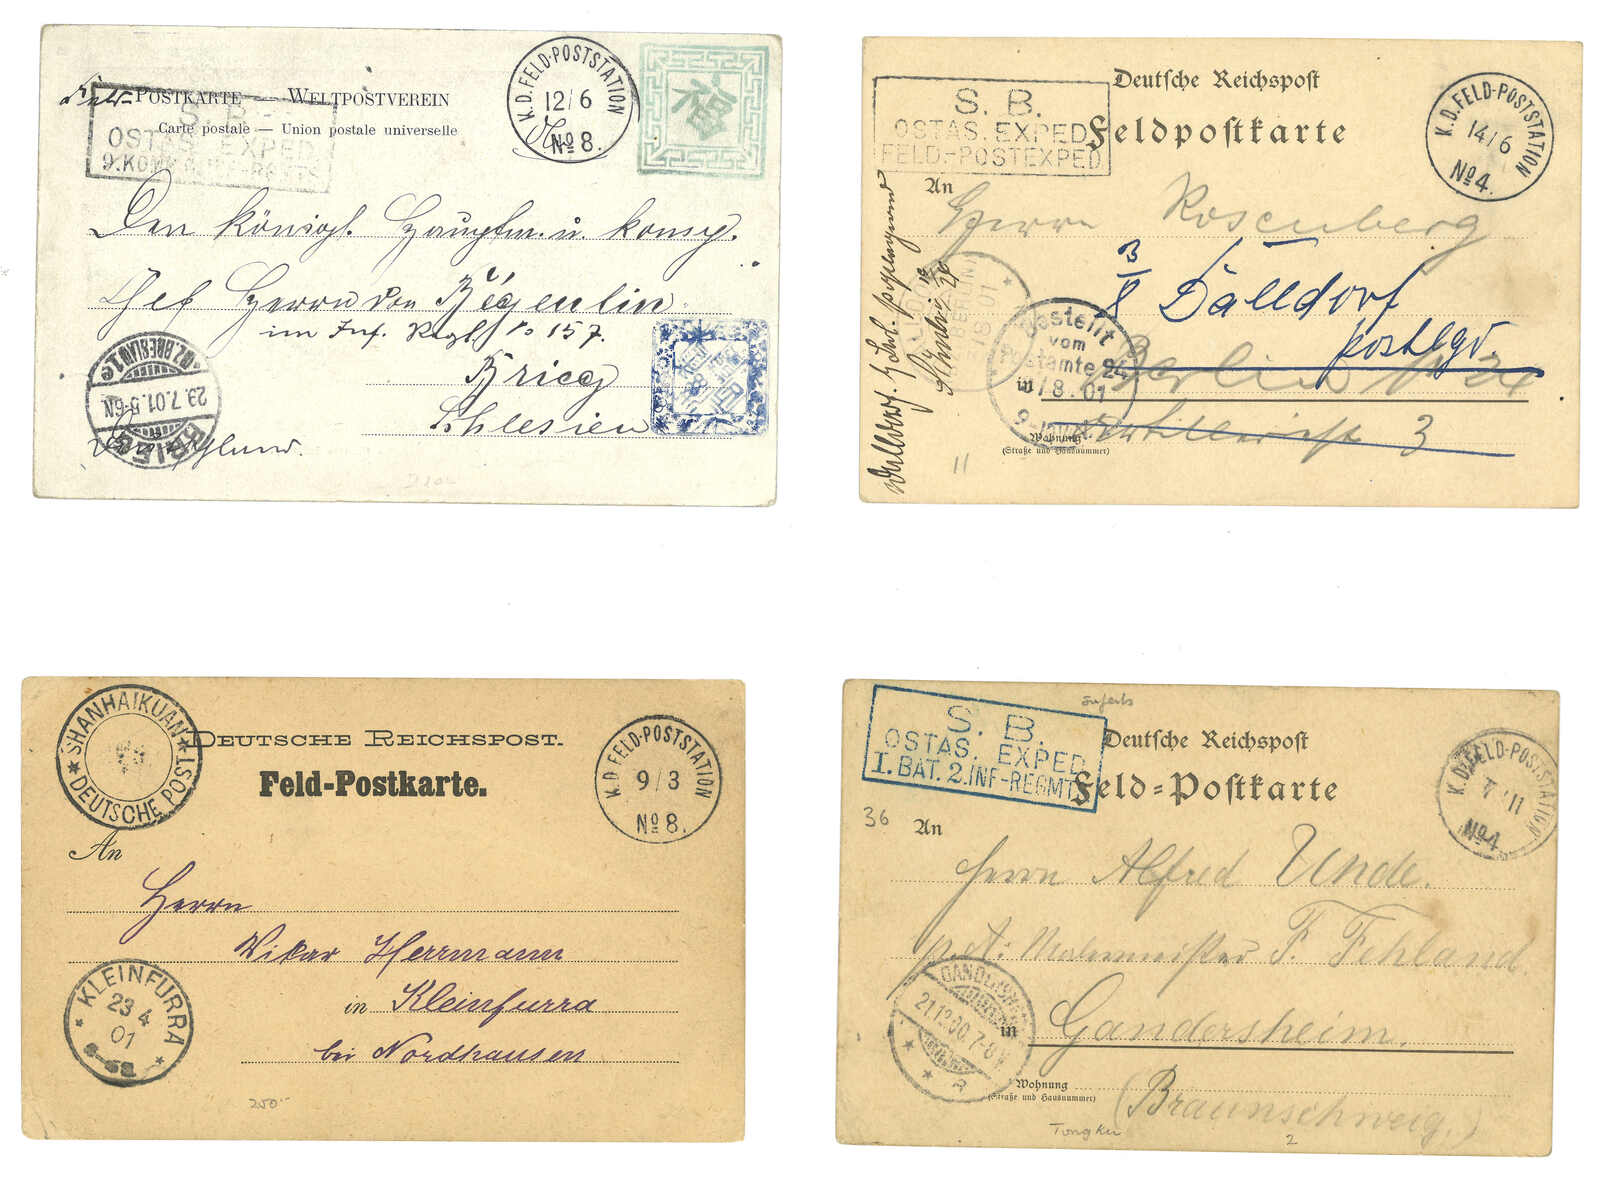 Feld-
POSTKARTE — WELTPOSTVEREIN
Carte postale — Union postale universelle
S. B.
OSTAS. EXPED.
9. KOMP.
K.D. FELD-POSTSTATION
12/6
No 8.
福
Den Königl. Hauptm. u. Komp.
Chef Herrn von
im Inf. Regt. No 157.
Brieg
Schlesien
BRIEG
* BZ. BRESLAU 1c
29.7.01.5-6N
Deutsche Reichspost
Feldpostkarte
S. B.
OSTAS. EXPED.
FELD.-POSTEXPED
K.D. FELD-POSTSTATION
14/6
No 4.
An
Herrn Rosenberg
Dalldorf
postlgd.
Berlin N 24
Artilleriestr 3
Bestellt
vom
Postamte 24
in
1/8.01
Wohnung
(Straße und Hausnummer)
11
SHANHAIKUAN
* DEUTSCHE POST *
DEUTSCHE REICHSPOST.
Feld-Postkarte.
K.D. FELD-POSTSTATION
9/3
No 8.
An
Herrn
Vikar Herrmann
in Kleinfurra
bei Nordhausen
* KLEINFURRA *
23 4
01
250-
S. B.
OSTAS. EXPED.
I. BAT. 2. INF-REGMT.
Deutsche Reichspost
Feld-Postkarte
K.D. FELD-POSTSTATION
7/11
No 4
36
An
Herrn Alfred Unde.
F. Fehland.
in Gandersheim.
GANDERSHEIM
21.12.00.7-8V
* * a
Wohnung
(Straße und Hausnummer)
(Braunschweig.)
Tongku
2